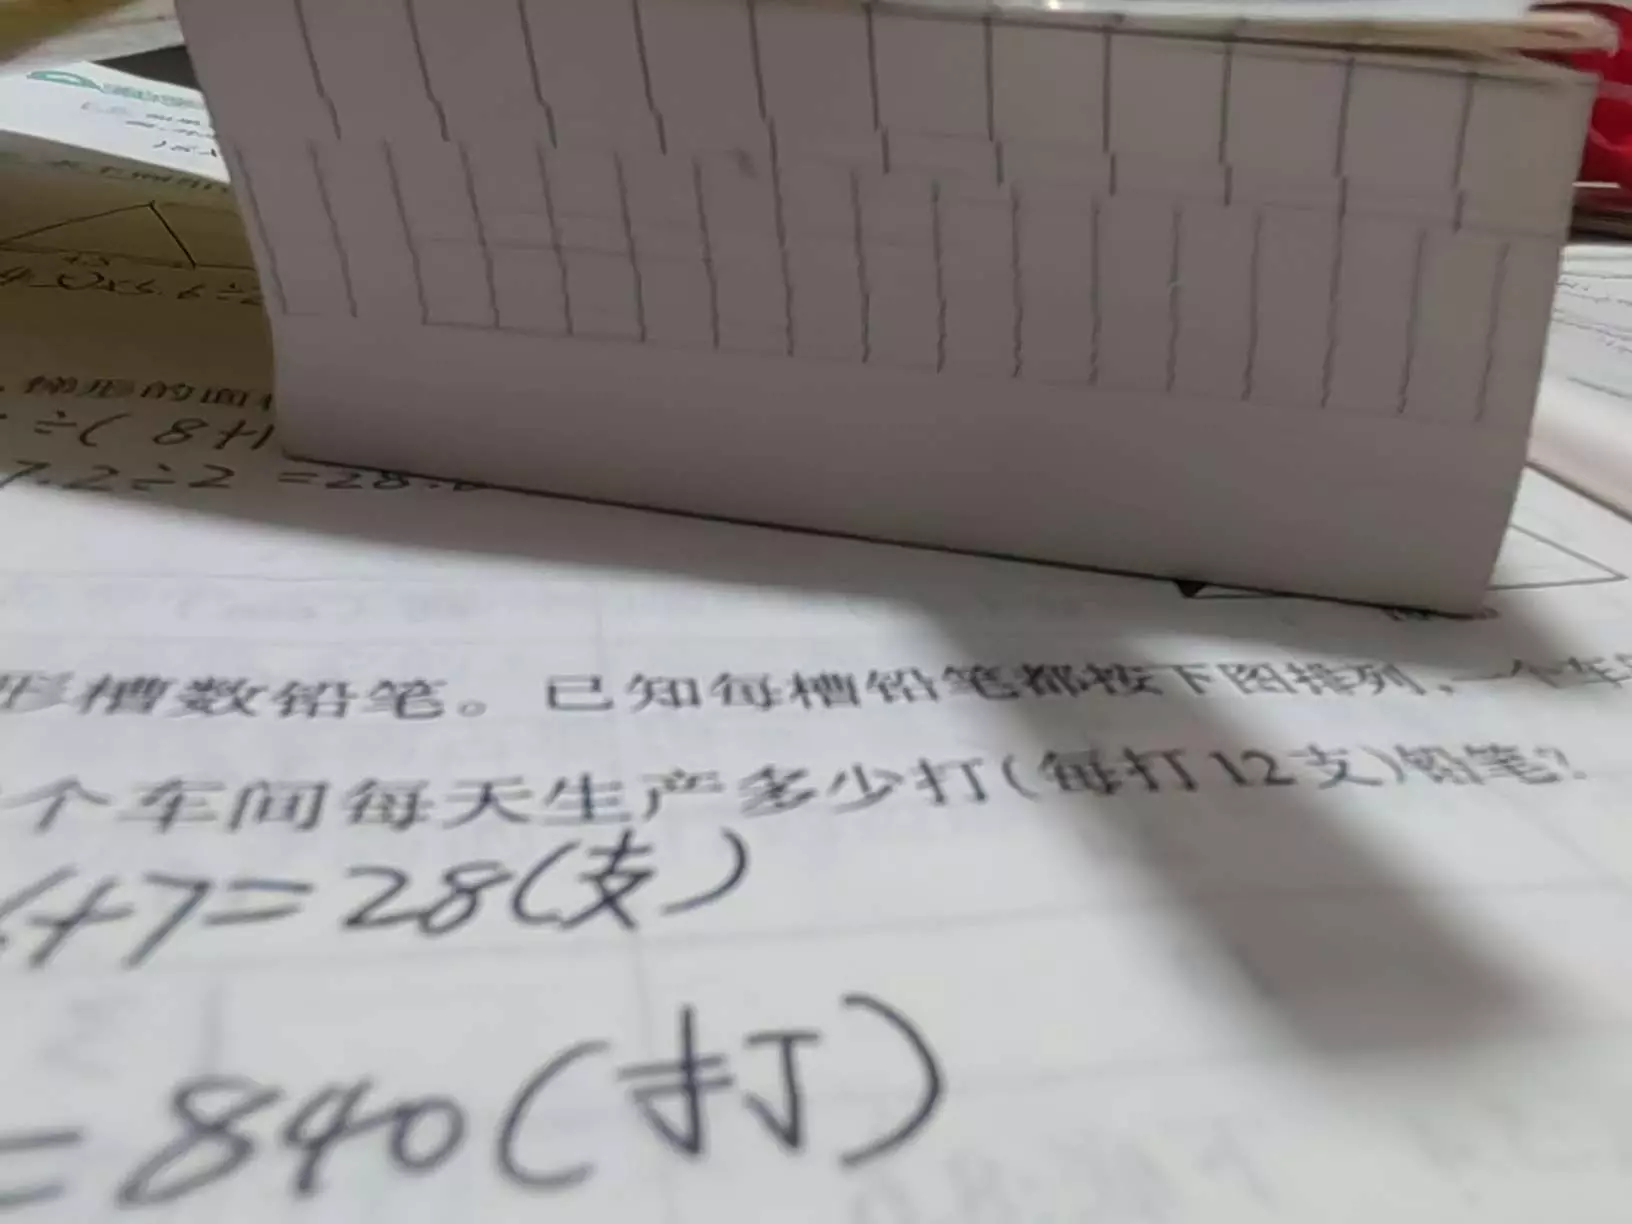 梯形的面
÷( 8+1
7.2÷2 =28.
形槽数铅笔。已知每槽铅笔都按下图排列,一个车
个车间每天生产多少打(每打12支)铅笔?
+7=28(支)
=840(打)